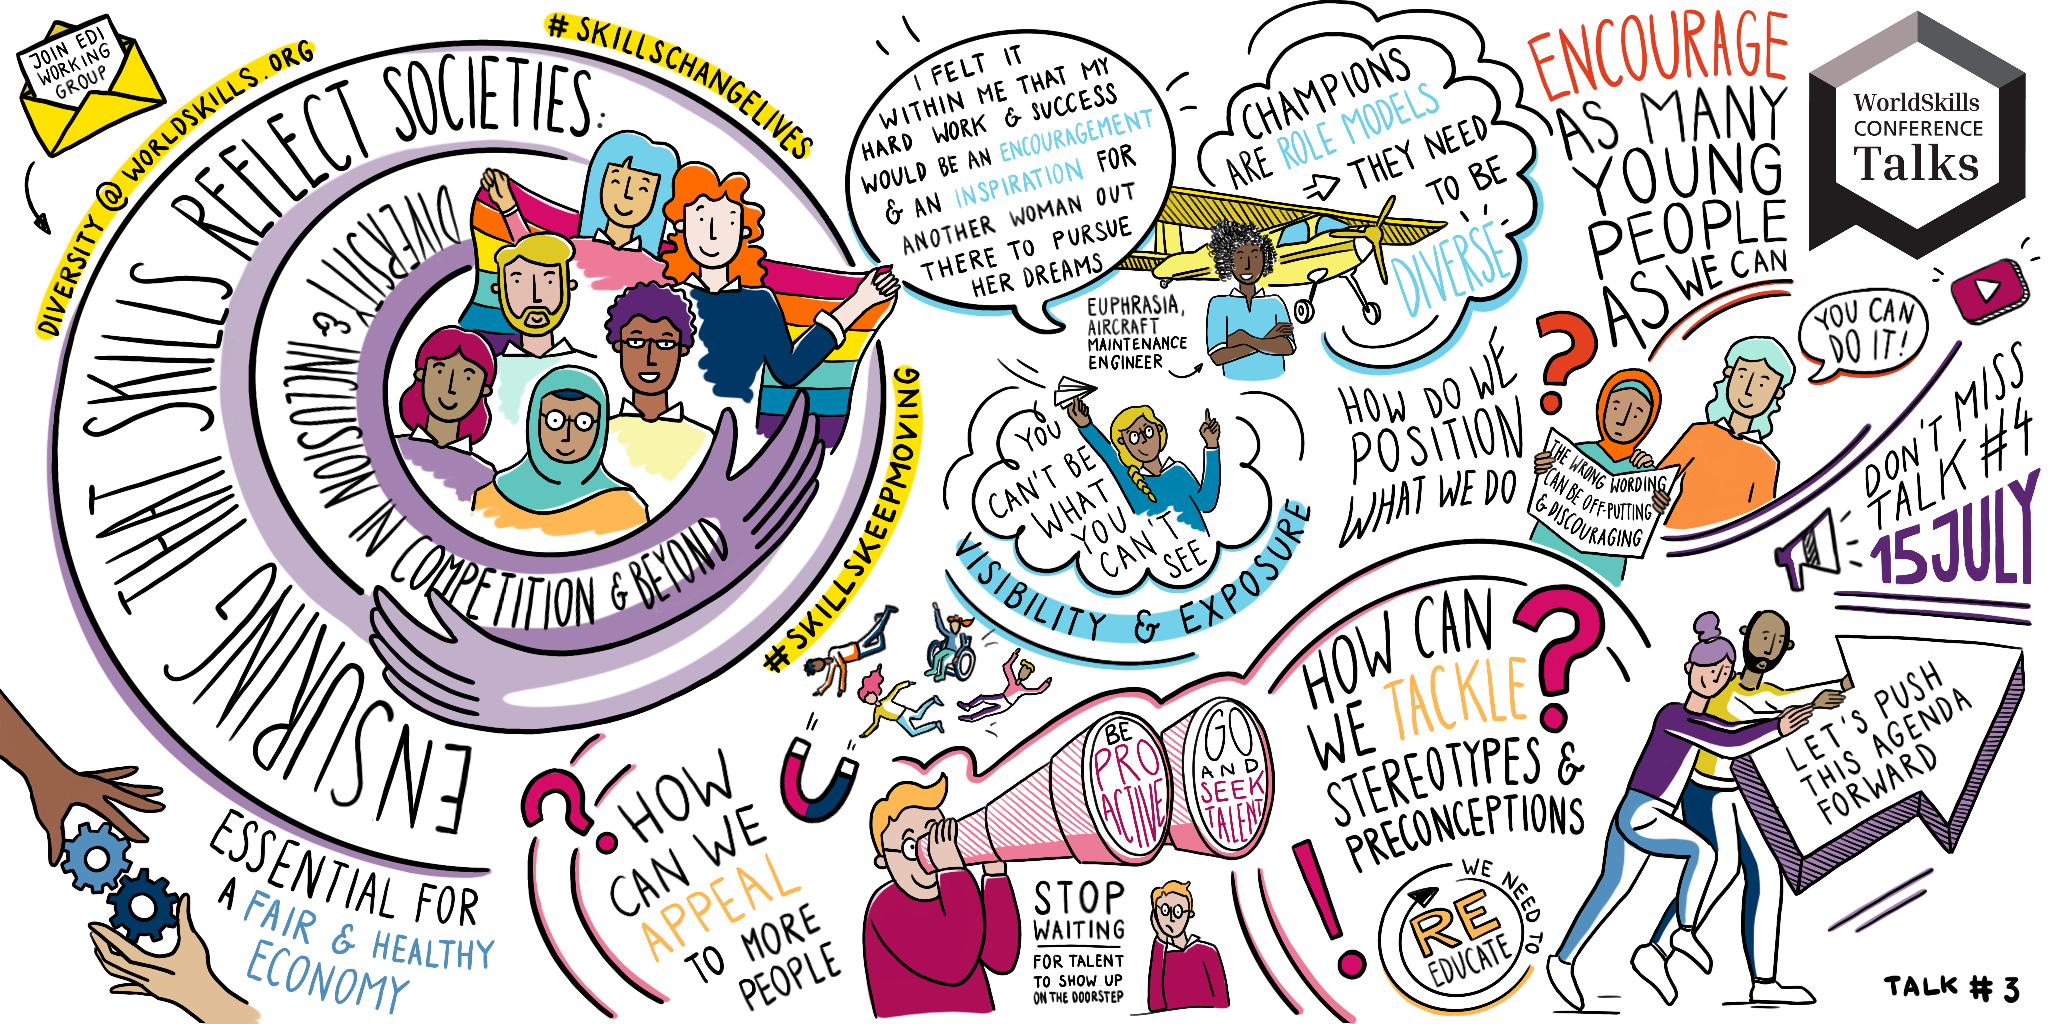 JOIN EDI
WORKING
GROUP
DIVERSITY @ WORLDSKILLS.ORG
#SKILLSCHANGELIVES
#SKILLSKEEPMOVING
ENSURING THAT SKILLS REFLECT SOCIETIES:
DIVERSITY & INCLUSION IN COMPETITION & BEYOND
ESSENTIAL FOR
A FAIR & HEALTHY
ECONOMY
I FELT IT
WITHIN ME THAT MY
HARD WORK & SUCCESS
WOULD BE AN ENCOURAGEMENT
& AN INSPIRATION FOR
ANOTHER WOMAN OUT
THERE TO PURSUE
HER DREAMS
EUPHRASIA,
AIRCRAFT
MAINTENANCE
ENGINEER
CHAMPIONS
ARE ROLE MODELS
⇒ THEY NEED
TO BE
DIVERSE
YOU
CAN'T BE
WHAT
YOU
CAN'T
SEE
VISIBILITY & EXPOSURE
ENCOURAGE
AS MANY
YOUNG
PEOPLE
AS WE CAN
WorldSkills
CONFERENCE
Talks
HOW DO WE
POSITION
WHAT WE DO
?
THE WRONG WORDING
CAN BE OFF-PUTTING
& DISCOURAGING
YOU CAN
DO IT!
DON'T MISS
TALK #4
15 JULY
?
HOW
CAN WE
APPEAL
TO MORE
PEOPLE
BE
PRO
ACTIVE
GO
AND
SEEK
TALENT
STOP
WAITING
FOR TALENT
TO SHOW UP
ON THE DOORSTEP
HOW CAN
WE TACKLE
STEREOTYPES &
PRECONCEPTIONS
?
!
WE NEED TO
RE
EDUCATE
LET'S PUSH
THIS AGENDA
FORWARD
TALK #3